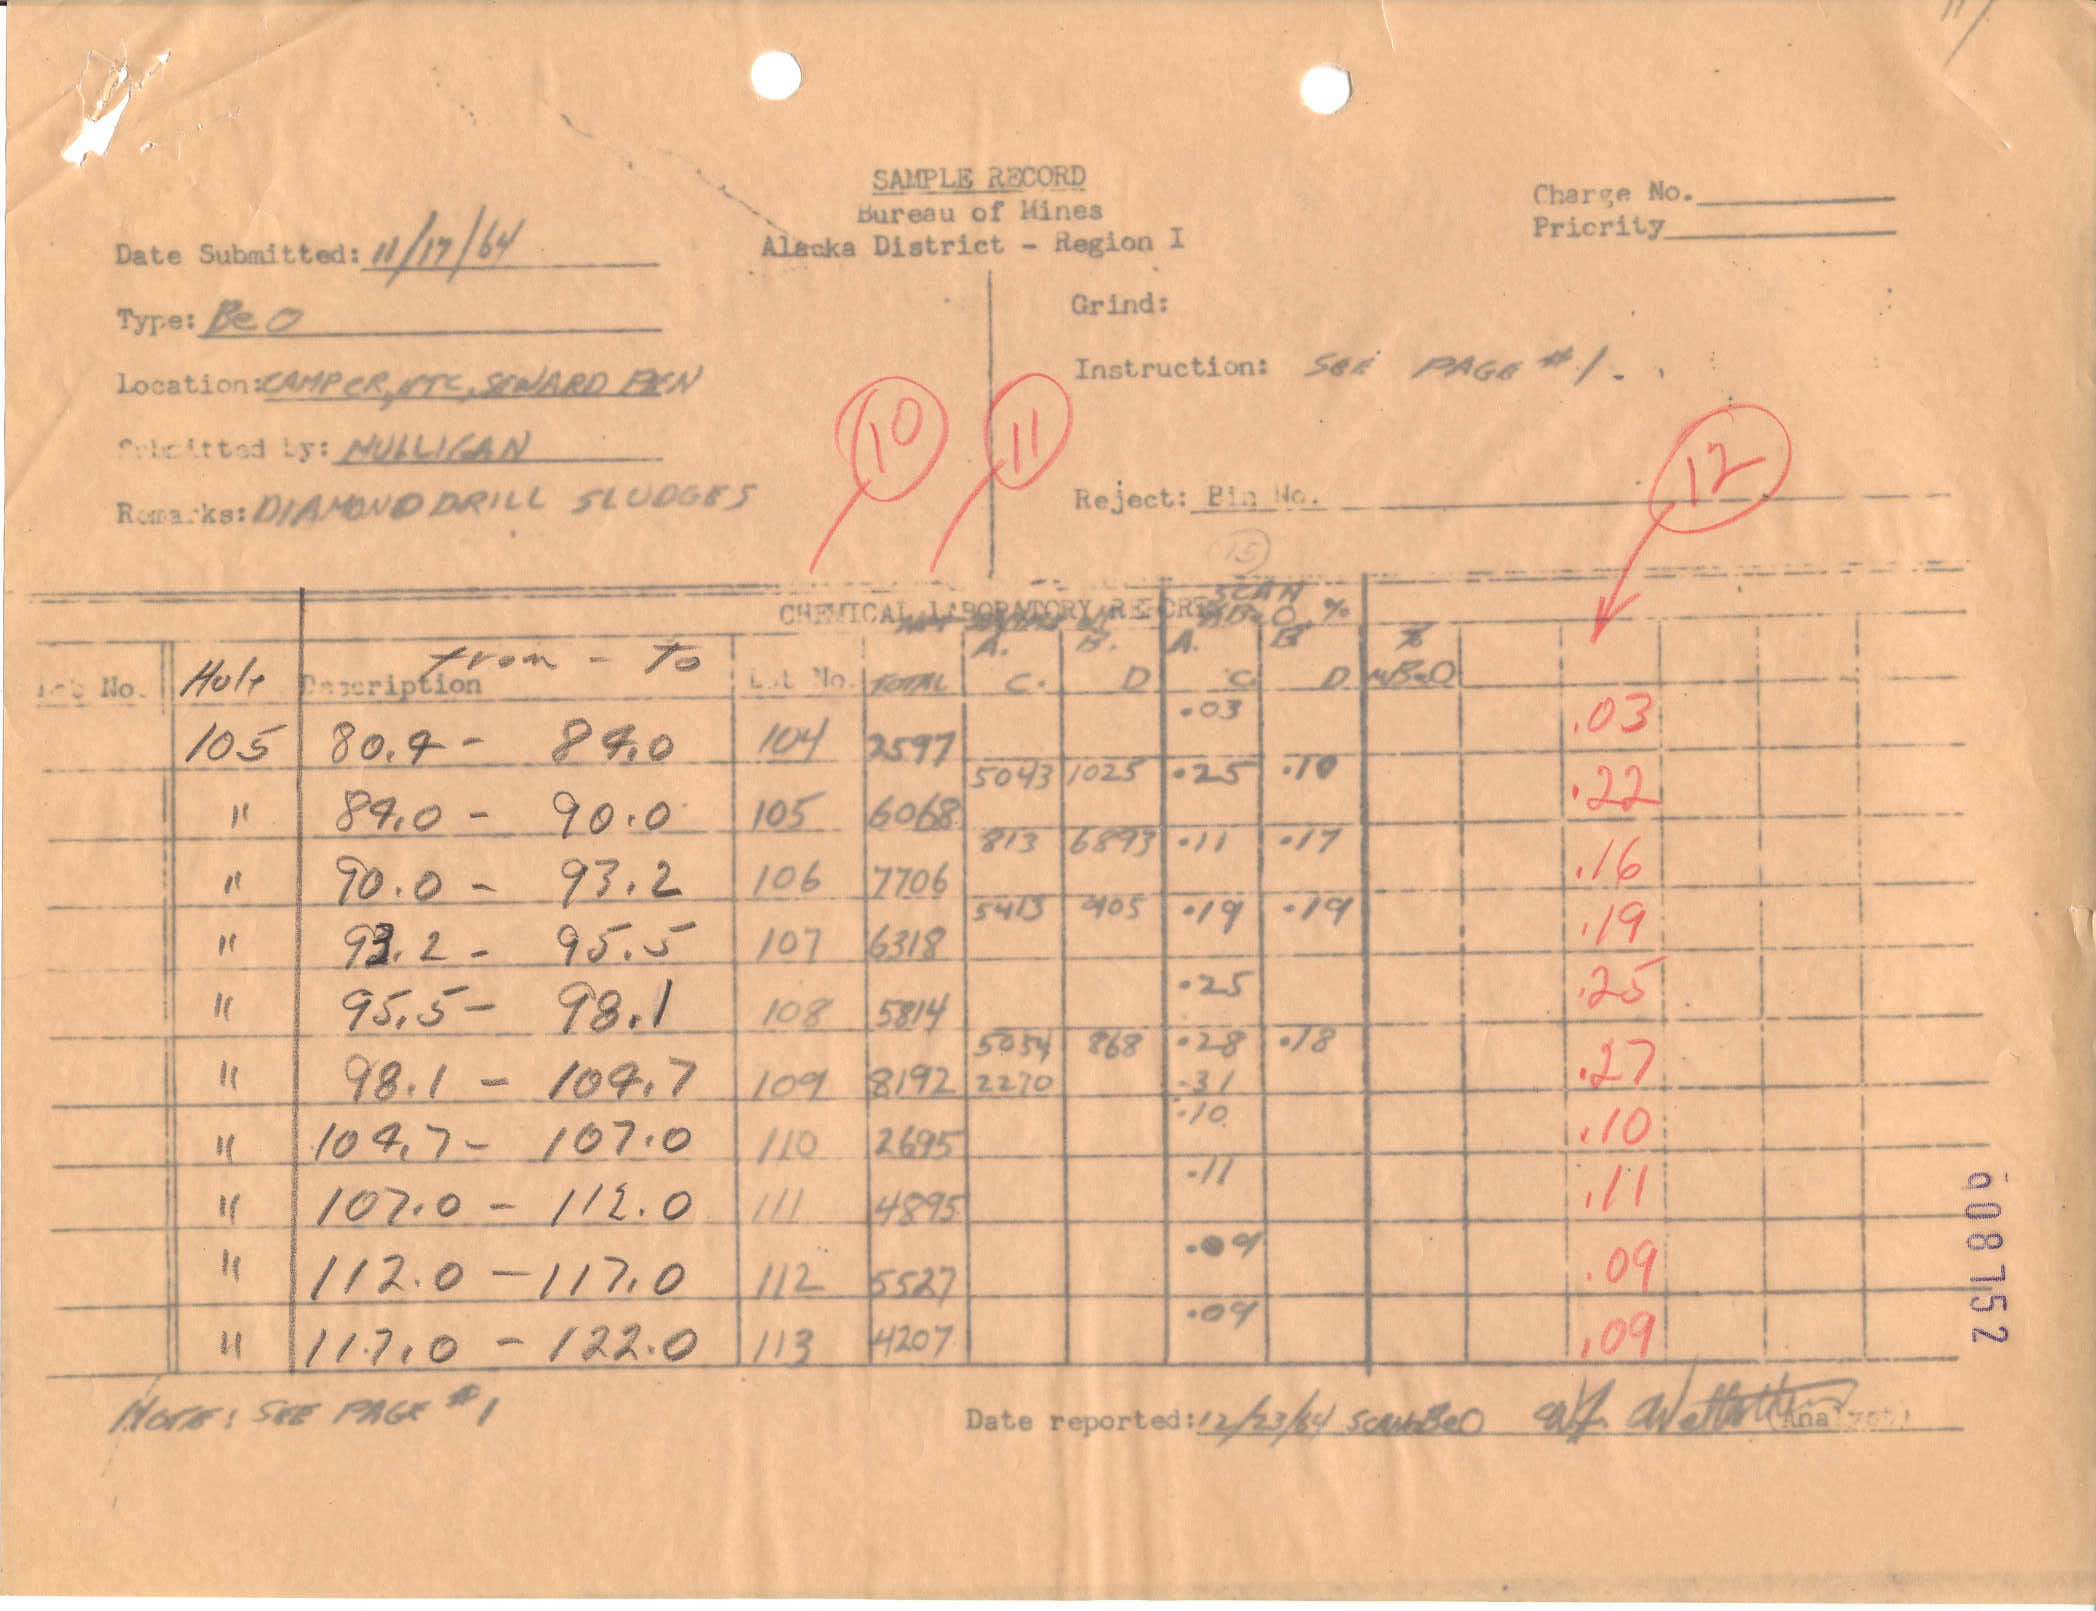 SAMPLE RECORD
Bureau of Mines
Alaska District - Region I
Charge No.
Priority
Date Submitted: 11/17/64
Type: BeO
Location: CAMPER, ETC, SEWARD PEN
Submitted by: MULLIGAN
Remarks: DIAMOND DRILL SLUDGES
Grind:
Instruction: SEE PAGE #1.
Reject: Bin No.
10 11 12
15
CHEMICAL LABORATORY REPORT SCAN BeO, %
A. B. A. B %
Lab No. Hole Description from - to Lot No. TOTAL C. D C D BeO
105 80.4 - 84.0 104 2597 .03 .03
" 84.0 - 90.0 105 6068 5043 1025 .25 .10 .22
" 90.0 - 93.2 106 7706 813 6893 .11 .17 .16
" 93.2 - 95.5 107 6318 5413 905 .19 .19 .19
" 95.5 - 98.1 108 5814 .25 .25
" 98.1 - 104.7 109 8192 5054 868 .28 .18 .27
2270 .31
" 104.7 - 107.0 110 2695 .10 .10
" 107.0 - 112.0 111 4895 .11 .11
" 112.0 - 117.0 112 5527 .09 .09
" 117.0 - 122.0 113 4207 .09 .09
NOTE: SEE PAGE #1
Date reported: 12/23/64 SCAN BeO (Analyst)